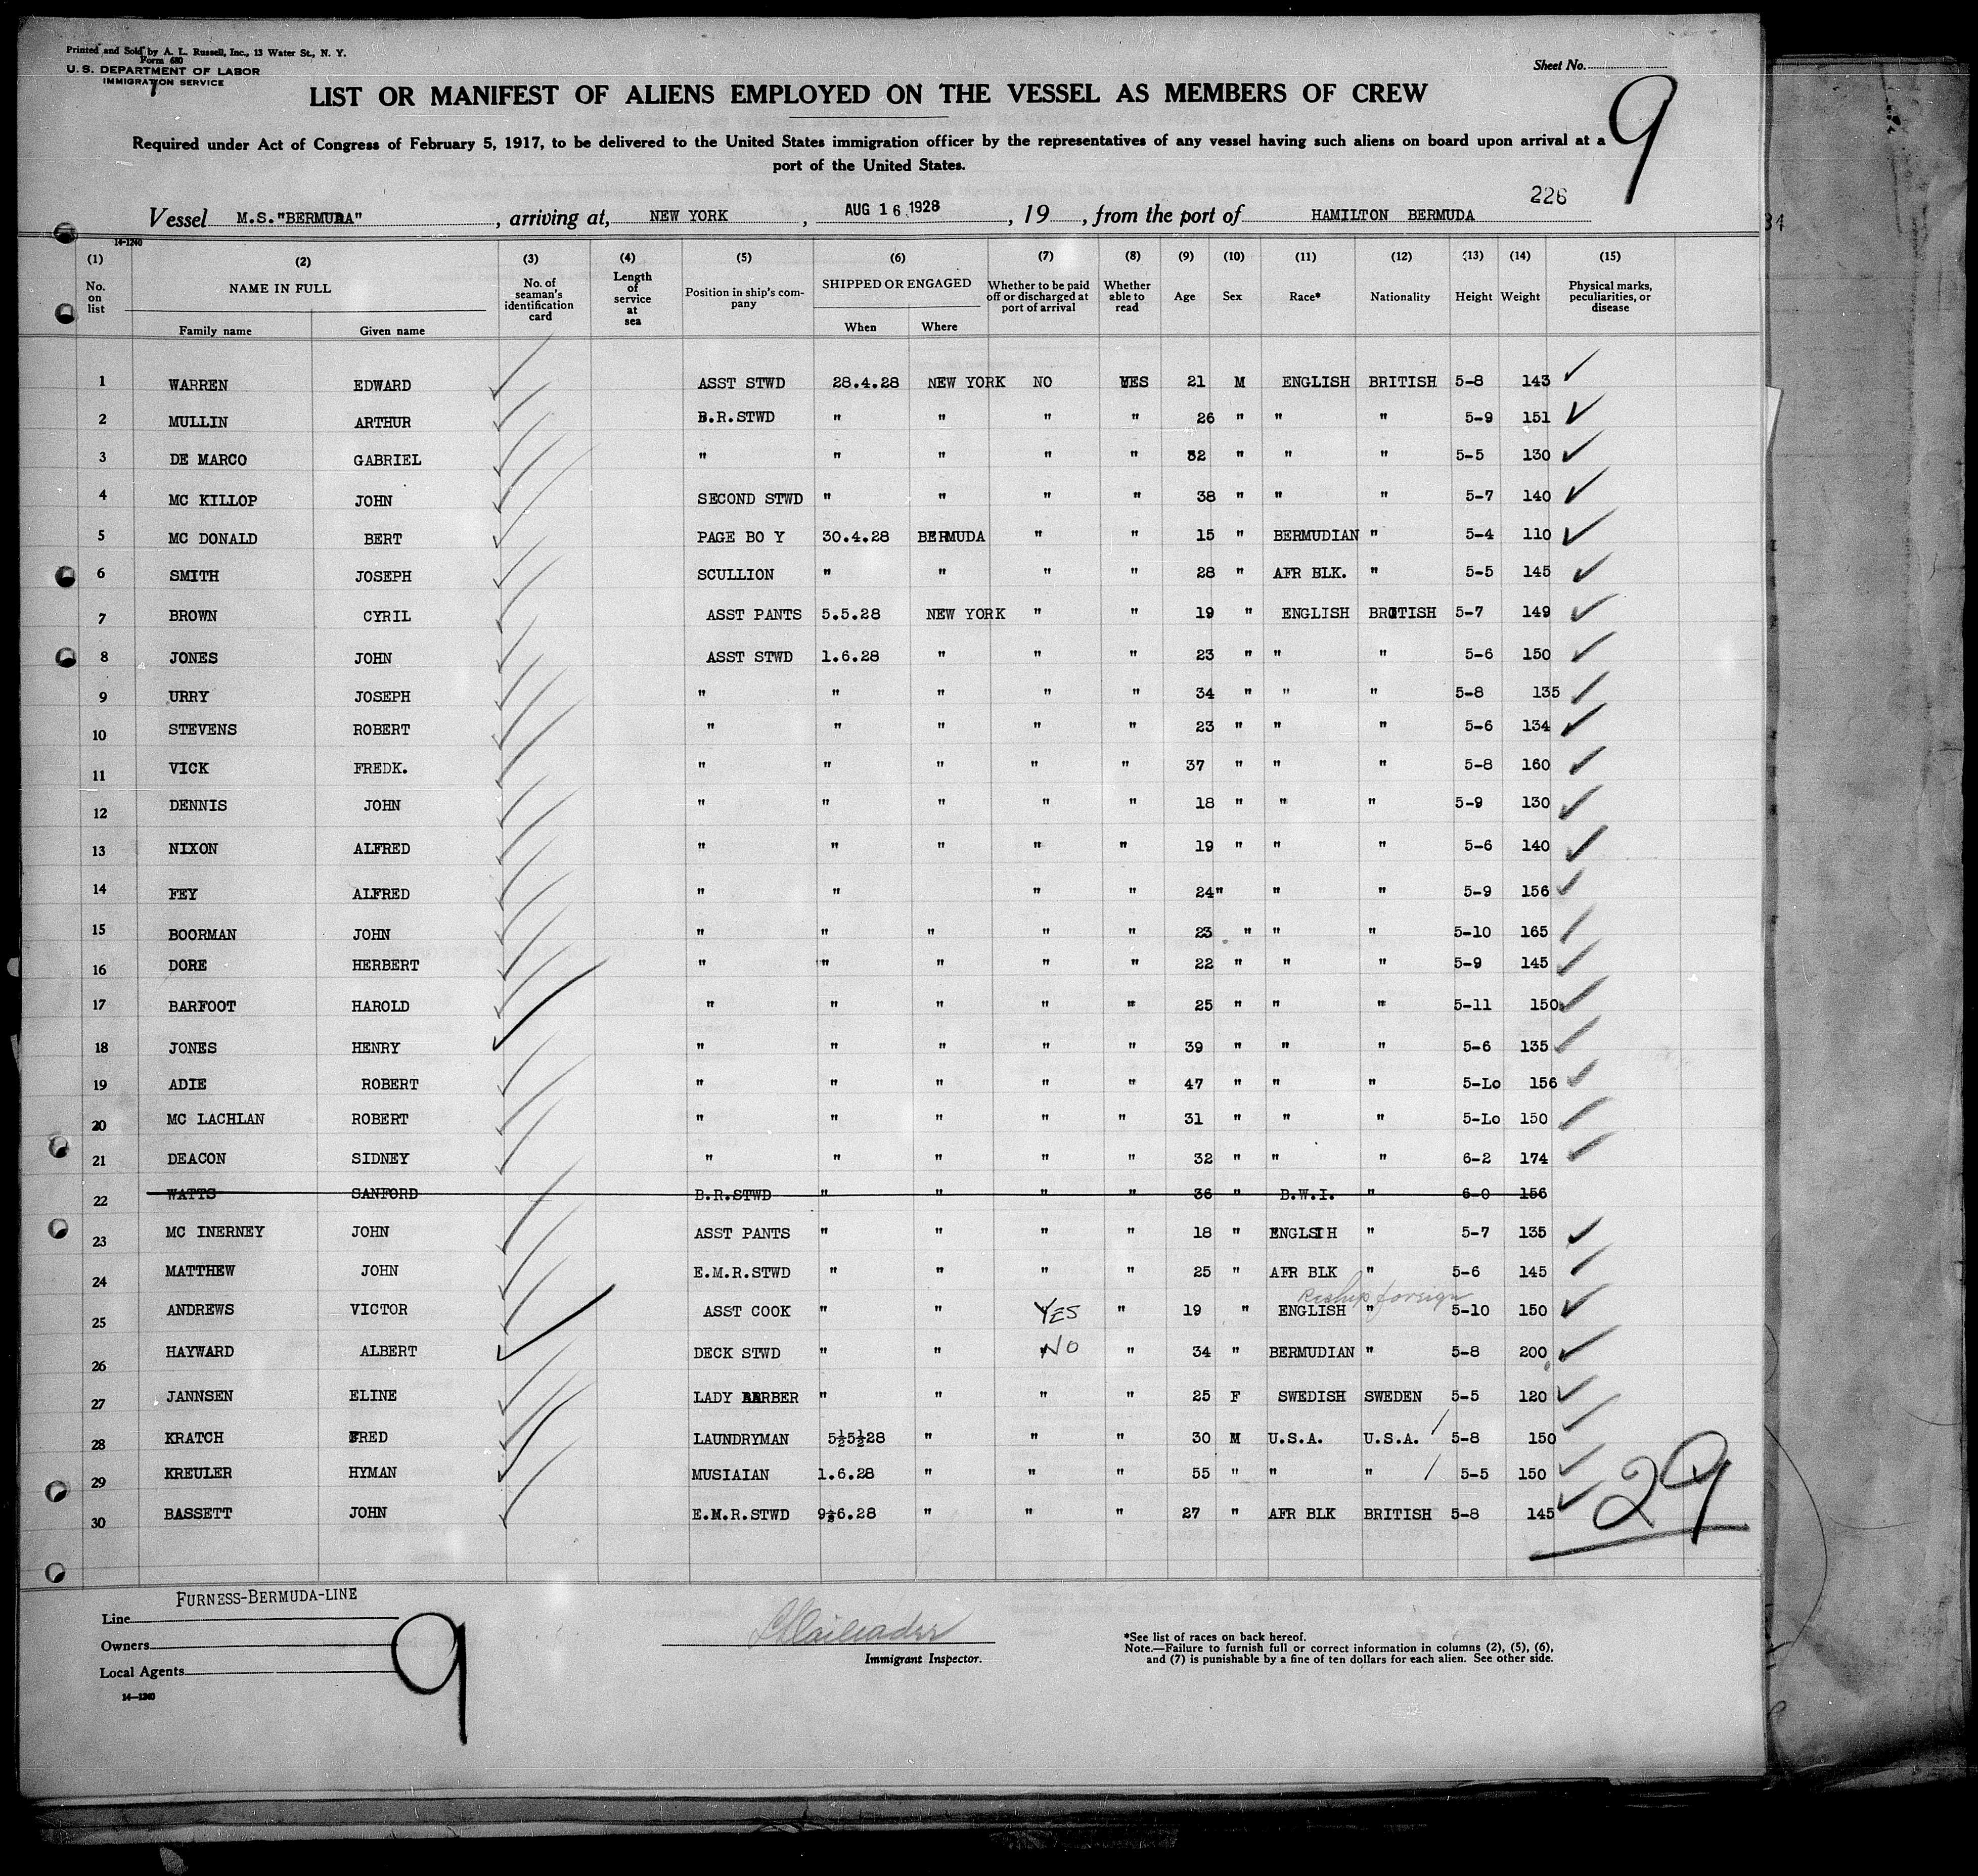 Printed and Sold by A. L. Russell, Inc., 13 Water St., N. Y.
Form 680
U. S. DEPARTMENT OF LABOR
IMMIGRATION SERVICE
Sheet No.
9
LIST OR MANIFEST OF ALIENS EMPLOYED ON THE VESSEL AS MEMBERS OF CREW
Required under Act of Congress of February 5, 1917, to be delivered to the United States immigration officer by the representatives of any vessel having such aliens on board upon arrival at a
port of the United States.
226
Vessel M.S."BERMUDA", arriving at, NEW YORK, AUG 16 1928, 19, from the port of HAMILTON BERMUDA
14-1240
(1) (2) (3) (4) (5) (6) (7) (8) (9) (10) (11) (12) (13) (14) (15)
No. on list NAME IN FULL Family name Given name No. of seaman's identification card Length of service at sea Position in ship's company SHIPPED OR ENGAGED When Where Whether to be paid off or discharged at port of arrival Whether able to read Age Sex Race* Nationality Height Weight Physical marks, peculiarities, or disease
1 WARREN EDWARD ASST STWD 28.4.28 NEW YORK NO YES 21 M ENGLISH BRITISH 5-8 143
2 MULLIN ARTHUR B.R.STWD " " " " 26 " " " 5-9 151
3 DE MARCO GABRIEL " " " " " 32 " " " 5-5 130
4 MC KILLOP JOHN SECOND STWD " " " " 38 " " " 5-7 140
5 MC DONALD BERT PAGE BO Y 30.4.28 BERMUDA " " 15 " BERMUDIAN " 5-4 110
6 SMITH JOSEPH SCULLION " " " " 28 " AFR BLK. " 5-5 145
7 BROWN CYRIL ASST PANTS 5.5.28 NEW YORK " " 19 " ENGLISH BRITISH 5-7 149
8 JONES JOHN ASST STWD 1.6.28 " " " 23 " " " 5-6 150
9 URRY JOSEPH " " " " " 34 " " " 5-8 135
10 STEVENS ROBERT " " " " " 23 " " " 5-6 134
11 VICK FREDK. " " " " " 37 " " " 5-8 160
12 DENNIS JOHN " " " " " 18 " " " 5-9 130
13 NIXON ALFRED " " " " " 19 " " " 5-6 140
14 FEY ALFRED " " " " 24 " " " 5-9 156
15 BOORMAN JOHN " " " " " 23 " " " 5-10 165
16 DORE HERBERT " " " " " 22 " " " 5-9 145
17 BARFOOT HAROLD " " " " " 25 " " " 5-11 150
18 JONES HENRY " " " " " 39 " " " 5-6 135
19 ADIE ROBERT " " " " " 47 " " " 5-Lo 156
20 MC LACHLAN ROBERT " " " " " 31 " " " 5-Lo 150
21 DEACON SIDNEY " " " " " 32 " " " 6-2 174
22 WATTS SANFORD B.R.STWD " " " " 36 " B.W.I. " 6-0 156
23 MC INERNEY JOHN ASST PANTS " " " " 18 " ENGLSIH " 5-7 135
24 MATTHEW JOHN E.M.R.STWD " " " " 25 " AFR BLK " 5-6 145
Reship foreign
25 ANDREWS VICTOR ASST COOK " " YES " 19 " ENGLISH " 5-10 150
26 HAYWARD ALBERT DECK STWD " " NO " 34 " BERMUDIAN " 5-8 200
27 JANNSEN ELINE LADY BARBER " " " " 25 F SWEDISH SWEDEN 5-5 120
28 KRATCH FRED LAUNDRYMAN 5½5½28 " " " 30 M U.S.A. U.S.A. 5-8 150
29 KREULER HYMAN MUSIAIAN 1.6.28 " " " 55 " " " 5-5 150
30 BASSETT JOHN E.M.R.STWD 9½6.28 " " " 27 " AFR BLK BRITISH 5-8 145
29
FURNESS-BERMUDA-LINE
Line
Owners
Local Agents
14-1240
9
Immigrant Inspector.
*See list of races on back hereof.
Note.—Failure to furnish full or correct information in columns (2), (5), (6),
and (7) is punishable by a fine of ten dollars for each alien. See other side.
34